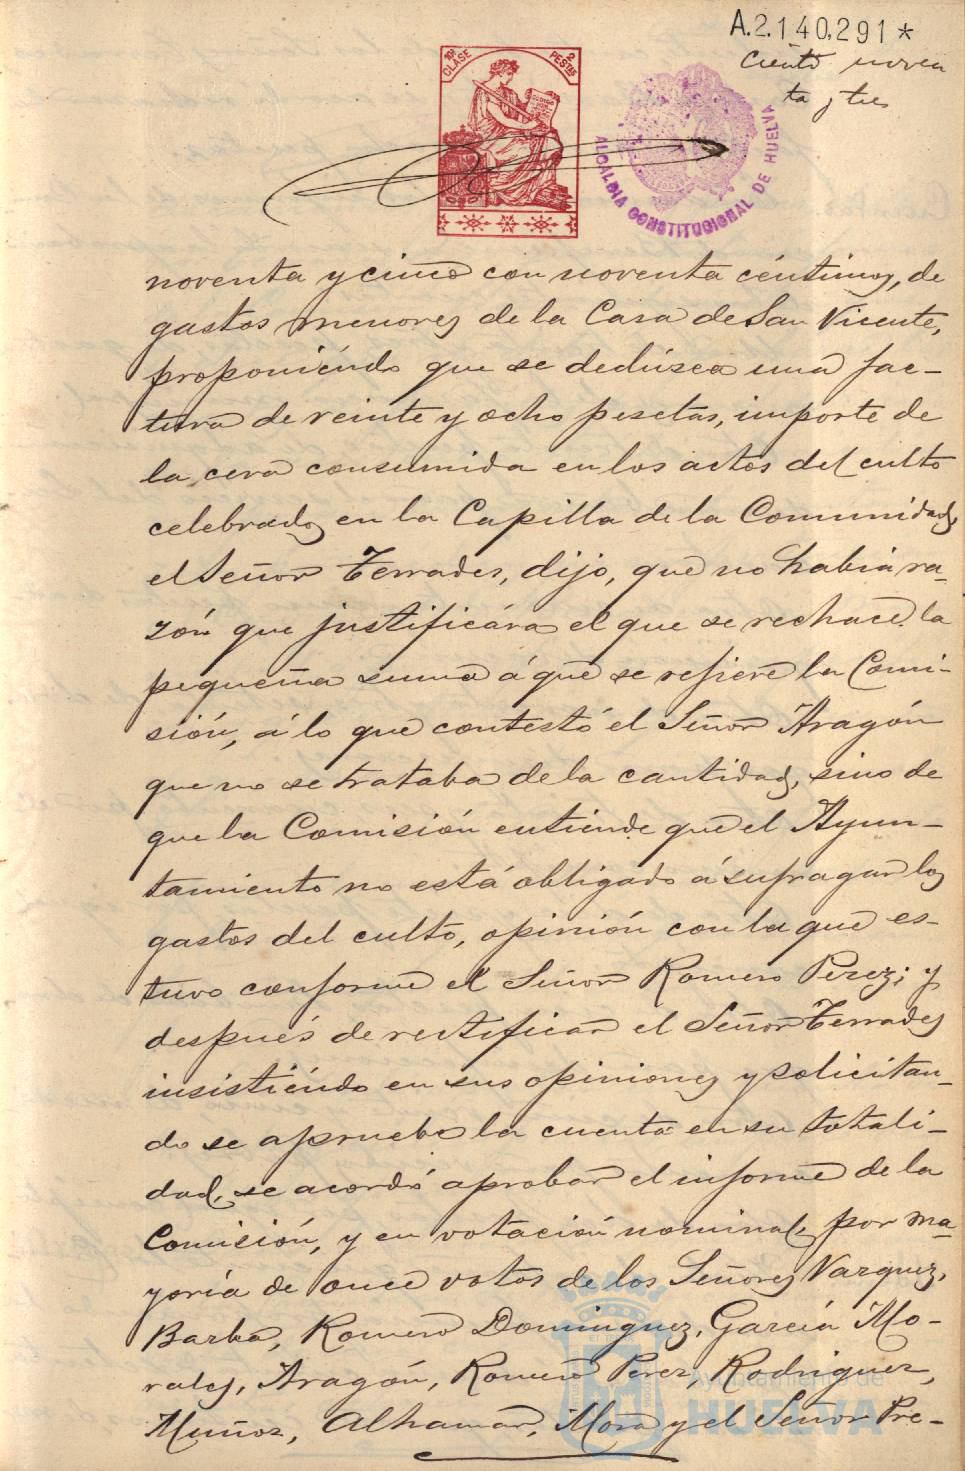 A.2.140,291*
Ciento noven
ta y tres
10ª CLASE
2 PESTAS
ALCALDIA CONSTITUCIONAL DE HUELVA
noventa y cinco con noventa céntimos, de
gastos menores de la Casa de San Vicente,
proponiéndo que se dedúzca una fac-
tura de veinte y ocho pesetas, importe de
la cera consumida en los actos del culto
celebrados en la Capilla de la Comunidad,
el Señor Terrades, dijo, que no habia ra-
zón que justificára el que se rechace la
pequeña suma á que se refiere la Comi-
sión, á lo que contestó el Señor Aragón
que no se trataba de la cantidad, sino de
que la Comisión entiende que el Ayun-
tamiento no está obligado á sufragar los
gastos del culto, opinión con la que es-
tuvo conforme el Señor Romero Perez; y
después de rectificar el Señor Terrades
insistiéndo en sus opiniones y solicitan-
do se apruebe la cuenta en su totali-
dad, se acordó aprobar el informe de la
Comisión, y en votación nominal, por ma-
yoria de once votos de los Señores Vazquez,
Barba, Romero Dominguez, García Mo-
rales, Aragón, Romero Perez, Rodriguez,
Muñoz, Alhamar, Mora y el Señor Pre-
Ayuntamiento de
HUELVA